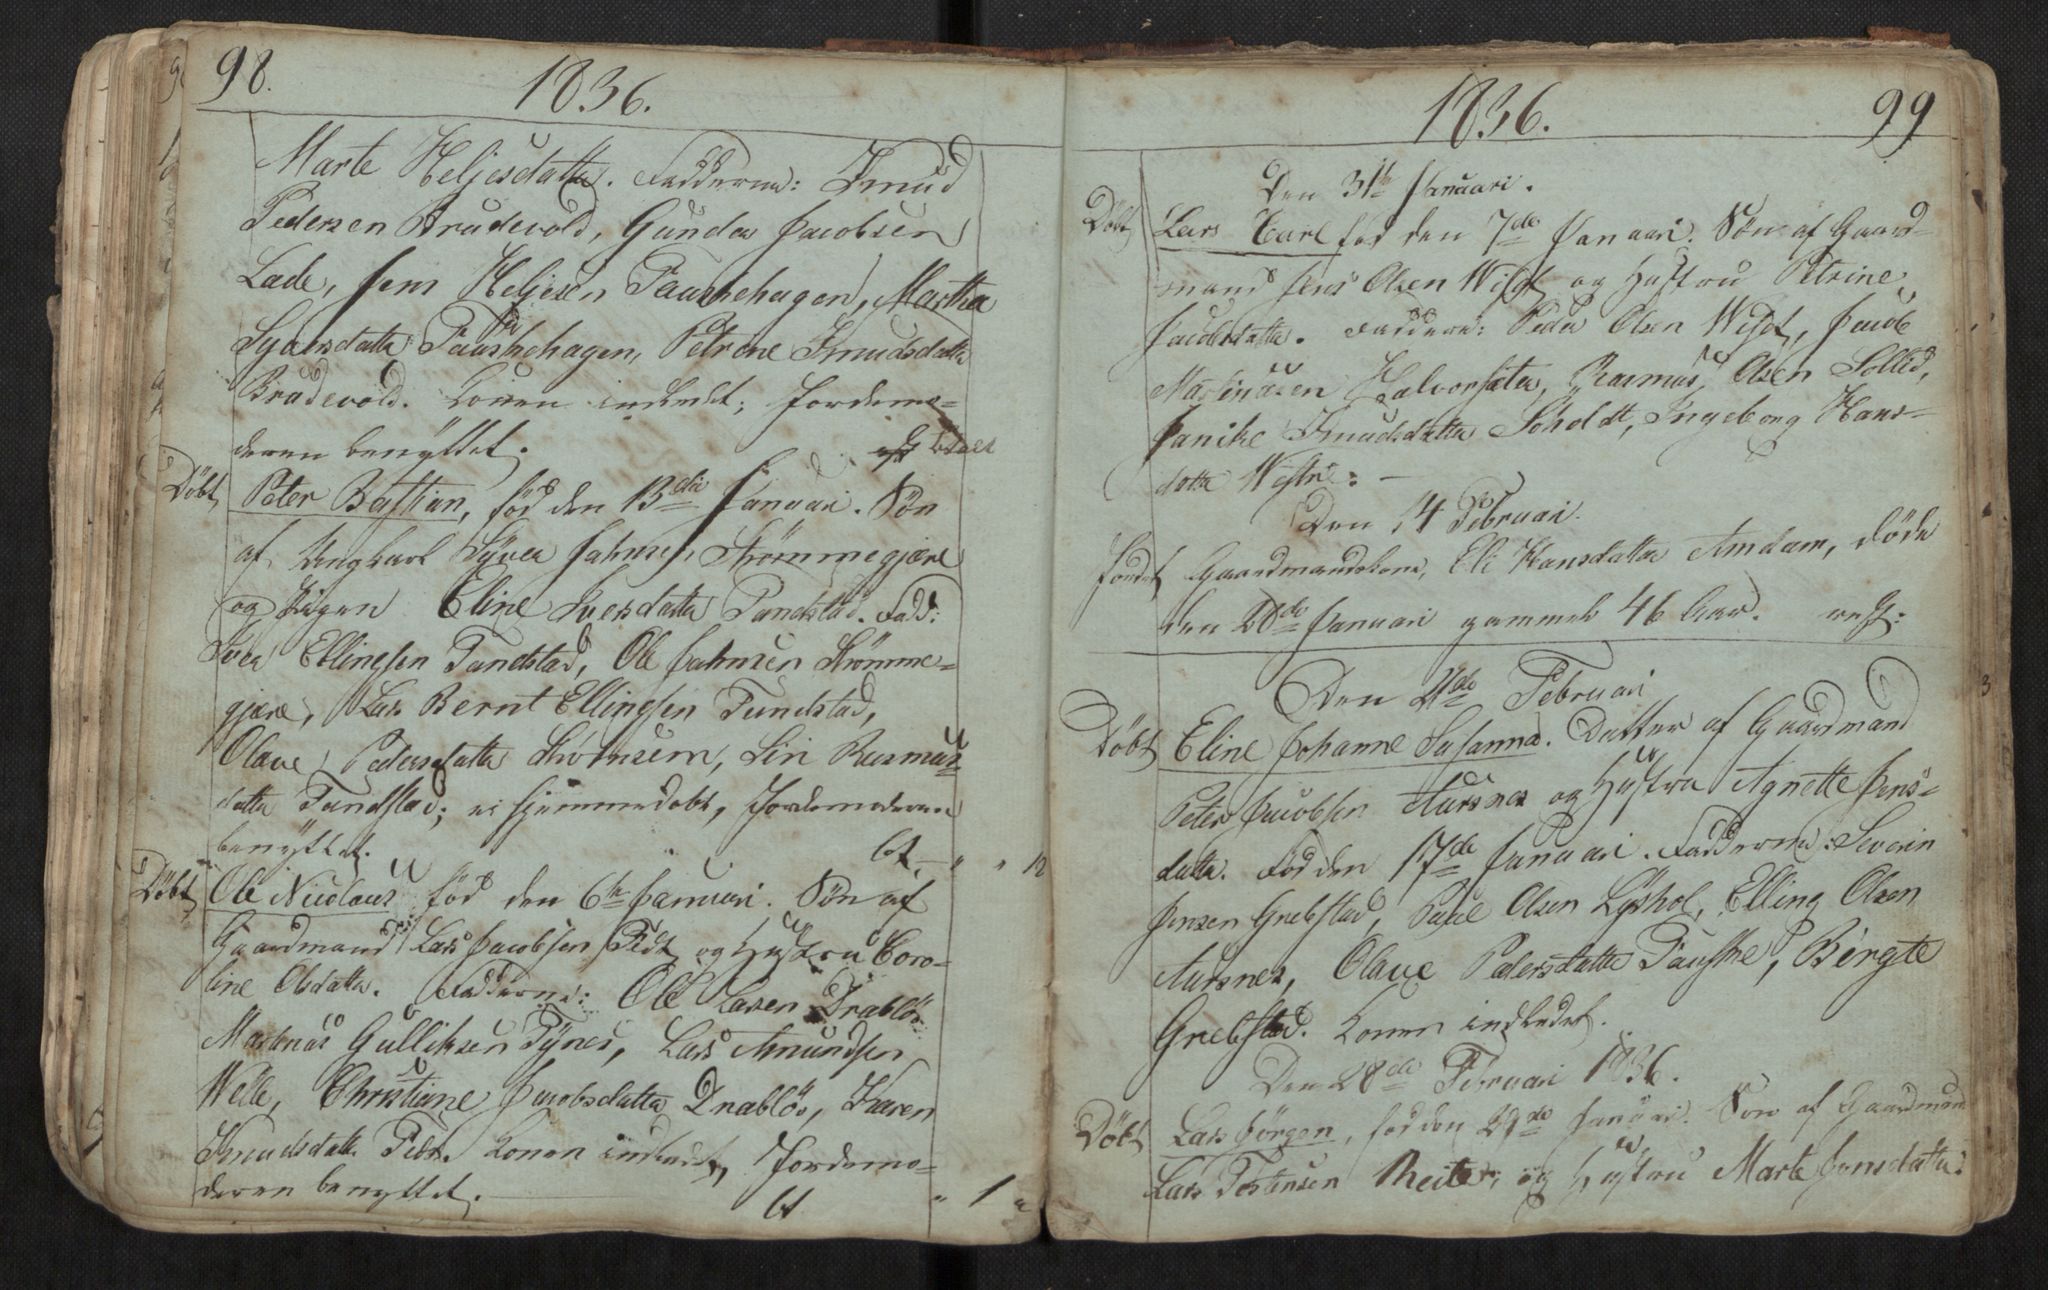 98.
1836.
Marte Heljesdatter. Fadderne: Knud
Pedersen Brudevold, Gunder Jacobsen
Lade, Jens Heljesen Fauskehagen, Martha
Syversdatter Fauskehagen, Petrone Knudsdatter
Brudevold. Konen indledt; Jordemo-
deren benyttet. betalt
Döbt Peter Bastian, föd den 13de Januari. Sön
af Ungkarl Syver Johnsen Strömmegjære
og Pigen Eline Iversdatter Tandstad. Fadd:
Iver Ellingsen Tandstad, Ole Johnsen Strömme-
gjære, Lars Bernt Ellingsen Tundstad,
Olave Pedersdatter, Siri Rasmus-
datter Tundstad; ei hjemmedöbt, Jordemoderen
benyttet. bt. " " 12
Döbt Ole Nicolaus föd den 6te Januari. Sön af
Gaardmand Lars Jacobsen Fedt og Hustru Coro-
line Olsdatter. Fadderne: Ole Larsen Drablös
Martinus Gulliksen Tynes, Lars Amundsen
Welle, Christiane Jacobsdatter Drablös, Karen
Knudsdatter Fedt. Konen indledt, Jordemo-
deren benyttet. bt " 1 "
1836.
99
Den 31te Januari.
Döbt Lars Carl föd den 7de Januari. Sön af Gaard-
mand Jens Olsen og Hustru Petrine
Jacobsdatter. Faddere: Peder Olsen, Jacob
Martinusen Halvorsæter, Rasmus Olsen Sollid,
Janike Knudsdatter Söholdt, Ingeborg Hans-
datter:
Den 14 Februari.
Jordet Gaardmandskone, Eli Hansdatter Amdam, döde
den 28de Januari gammel 46 Aar. rest:
Den 21de Februari
Döbt Eline Johanne Susanna. Datter af Gaardmand
Peter Jacobsen Aursnes og Hustru Agnette Jens-
datter. Föd den 17de Januari. Fadderne: Severin
Jensen Grebstad, Paul Olsen Lyshol, Elling Olsen
Aursnes, Olave Pedersdatter Fauske, Birgte
Grebstad. Konen indledet.
Den 28de Februari 1836.
Döbt Lars Jörgen, föd den 29de Januari. Sön af Gaardmand
Lars Tostensen Reite, og Hustru Marte Jonsdatter: